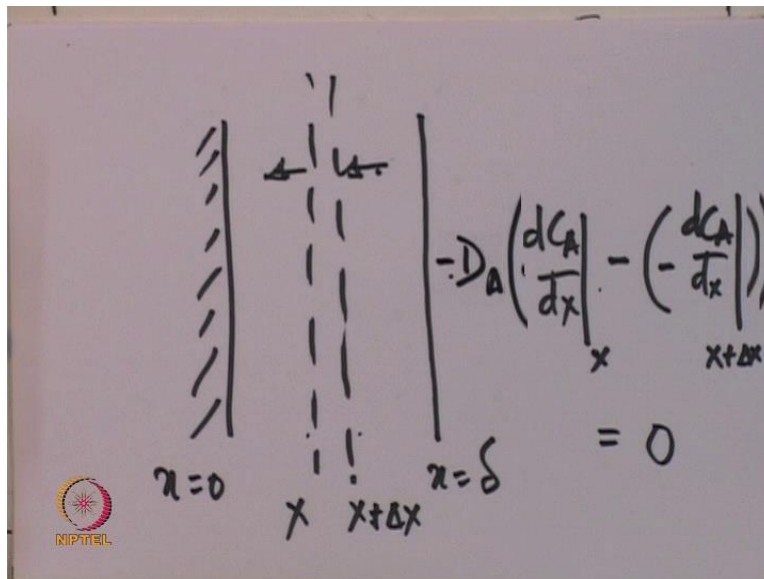 -D_A (dC_A/dx|_x - (-dC_A/dx|_{x+Δx}))
= 0
x=0
x=δ
x
x+Δx
NPTEL